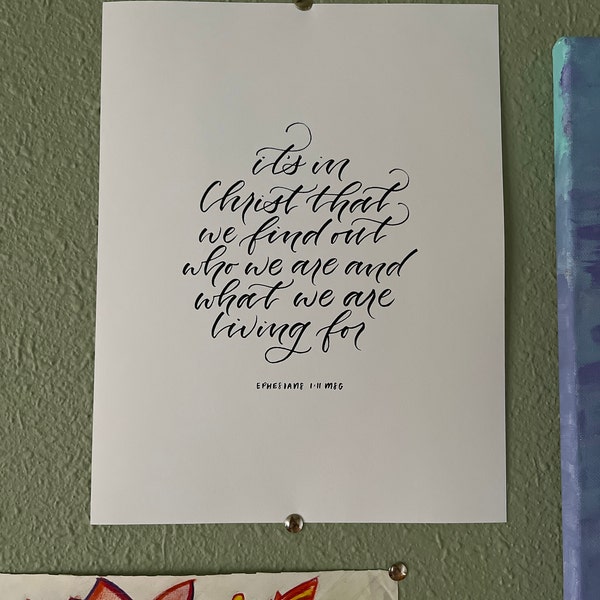 it's in
Christ that
we find out
who we are and
what we are
living for
EPHESIANS 1:11 MSG